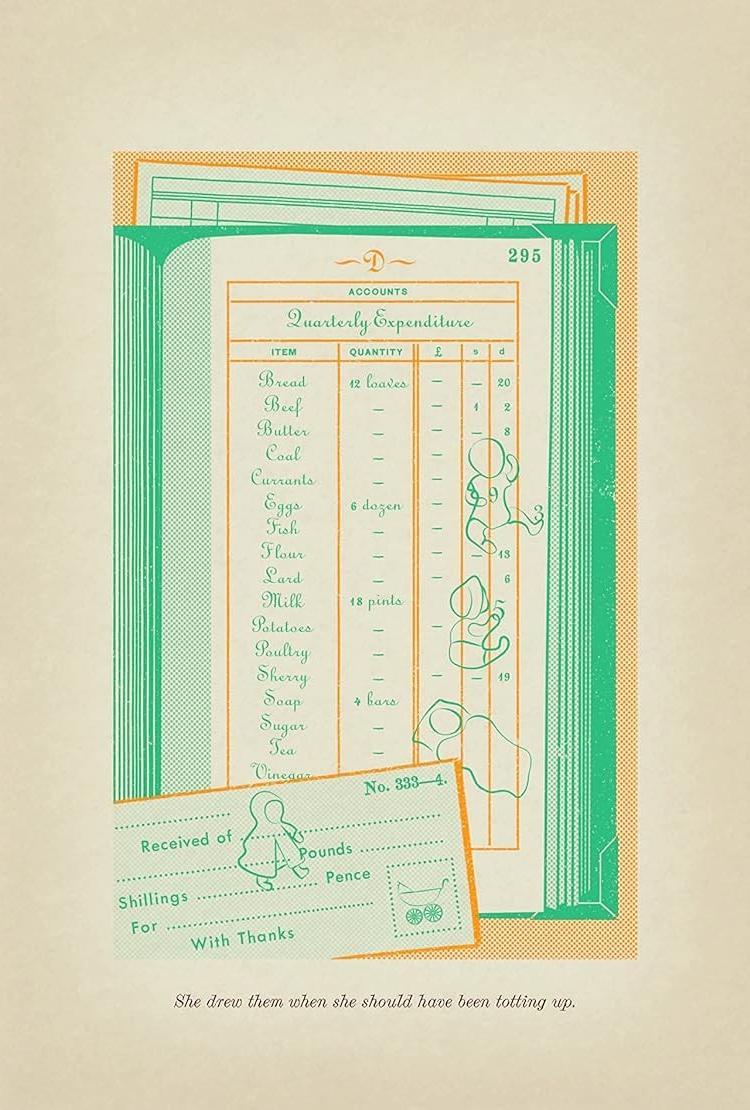 D
295
ACCOUNTS
Quarterly Expenditure
ITEM QUANTITY £ s d
Bread 12 loaves — — 20
Beef — — 1 2
Butter — — — 8
Coal — —
Currants — — 9 3
Eggs 6 dozen —
Fish — —
Flour — — 13
Lard — — 6
Milk 18 pints 5
Potatoes — —
Poultry —
Sherry — — — 19
Soap 4 bars
Sugar —
Tea —
Vinegar
No. 333—4.
Received of
Pounds
Shillings Pence
For
With Thanks
She drew them when she should have been totting up.